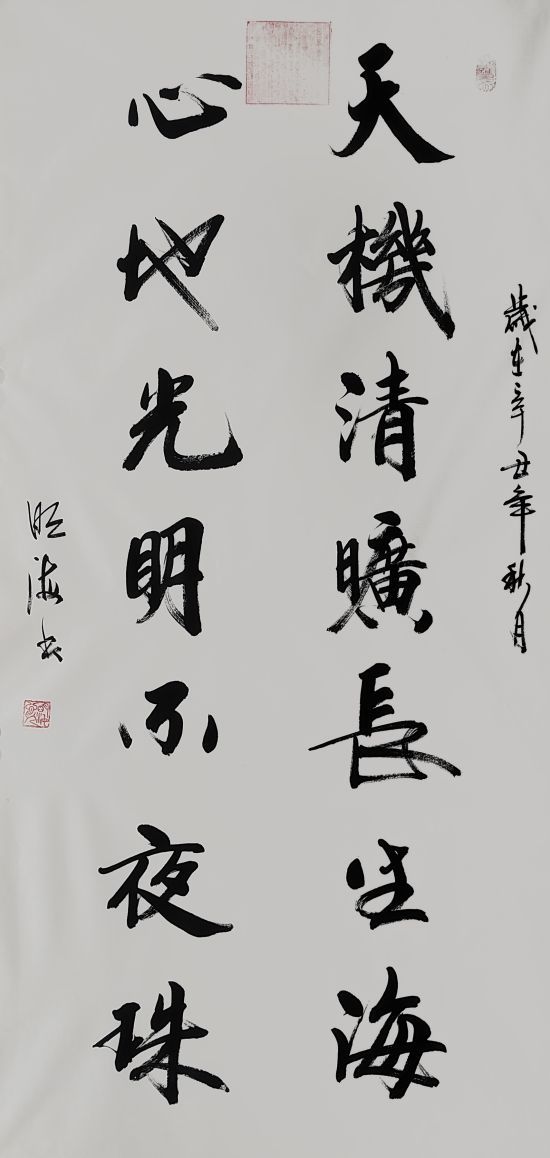 歲在辛丑年秋月
天機清曠長生海
心地光明不夜珠
海书